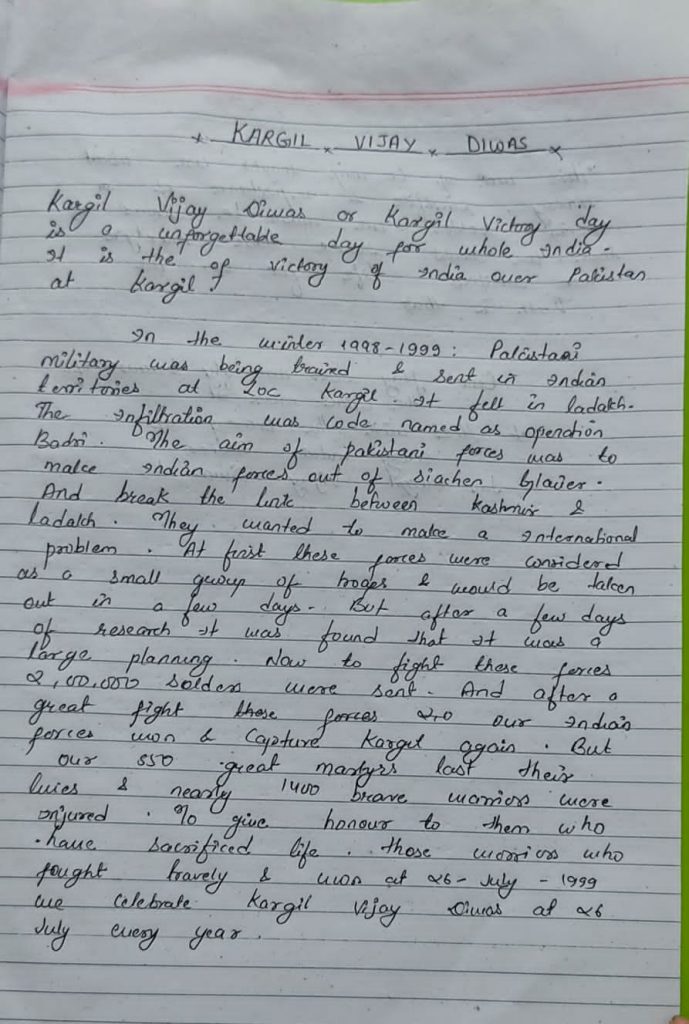 x KARGIL x VIJAY x DIWAS x
Kargil Vijay Diwas or Kargil Victory day
is a unforgettable day for whole India.
It is the of victory of India over Pakistan
at Kargil.
In the winter 1998-1999: Pakistani
military was being trained & sent in Indian
territories at LOC Kargil. It fell in ladakh.
The Infiltration was code named as operation
Badri. The aim of pakistani forces was to
make Indian forces out of siachen Glacier.
And break the link between Kashmir &
ladakh. They wanted to make a International
problem. At first these forces were considered
as a small group of & would be taken
out in a few days. But after a few days
of research It was found that It was a
large planning. Now to fight these forces
2,00,000 solders were sent. And after a
great fight these forces our Indian
forces won & Capture Kargil again. But
our 550 great martyrs last their
lives & nearly 1400 brave warriors were
injured. To give honour to them who
have sacrificed life. those worriors who
fought bravely & won at 26-July-1999
we celebrate Kargil Vijay Diwas at 26
July every year.